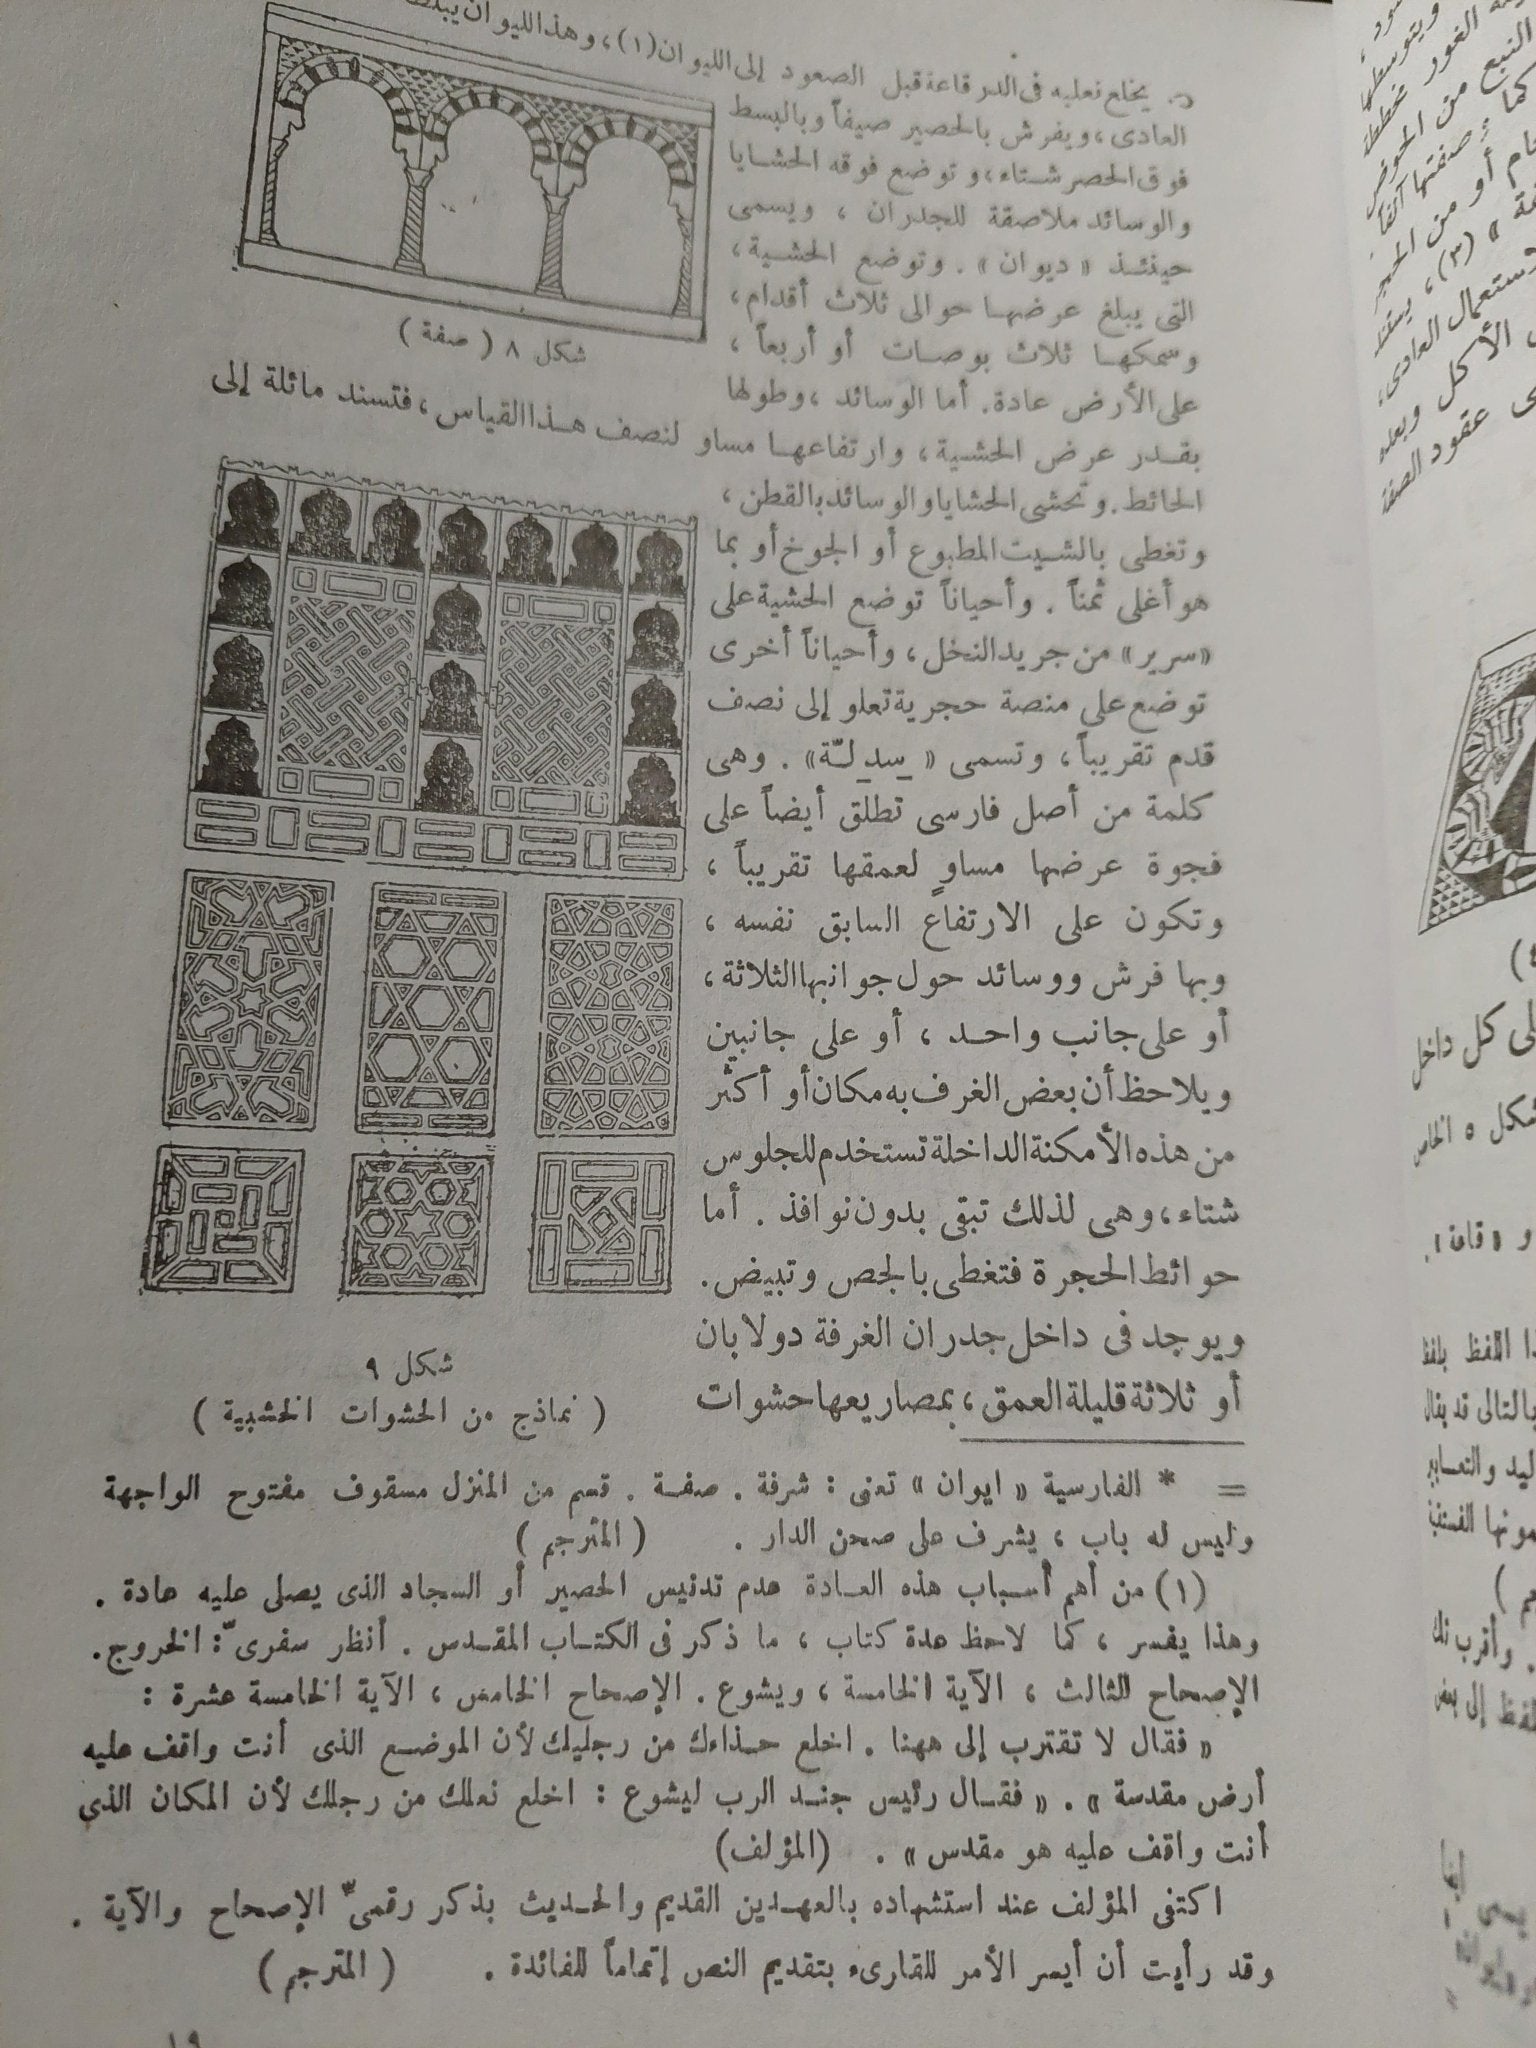 يخلع نعليه فى الدرقاعة قبل الصعود إلى الليوان (١)، وهذا الليوان يبلط
العادى، ويفرش بالحصير صيفاً وبالبسط
فوق الحصر شتاء، وتوضع فوقه الحشايا
والوسائد ملاصقة للجدران ، ويسمى
حينئذ « ديوان » . وتوضع الحشية،
التى يبلغ عرضها حوالى ثلاث أقدام،
وسمكها ثلاث بوصات أو أربعاً ،
على الأرض عادة. أما الوسائد ، وطولها
شكل ٨ ( صفة )
بقدر عرض الحشية، وارتفاعها مساو لنصف هذا القياس، فتسند مائلة إلى
الحائط. وتحشى الحشايا والوسائد بالقطن،
وتغطى بالشيت المطبوع أو الجوخ أو بما
هو أغلى ثمناً . وأحياناً توضع الحشية على
«سرير» من جريد النخل، وأحياناً أخرى
توضع على منصة حجرية تعلو إلى نصف
قدم تقريباً، وتسمى « سِدِلّة» . وهى
كلمة من أصل فارسى تطلق أيضاً على
فجوة عرضها مساوٍ لعمقها تقريباً ،
وتكون على الارتفاع السابق نفسه ،
وبها فرش ووسائد حول جوانبها الثلاثة،
أو على جانب واحد ، أو على جانبين
ويلاحظ أن بعض الغرف به مكان أو أكثر
من هذه الأمكنة الداخلة تستخدم للجلوس
شتاء، وهى لذلك تبقى بدون نوافذ . أما
حوائط الحجرة فتغطى بالجص وتبيض.
ويوجد فى داخل جدران الغرفة دولابان
أو ثلاثة قليلة العمق، بمصاريعها حشوات
شكل ٩
( نماذج من الحشوات الخشبية )
= * الفارسية « ايوان » تعنى : شرفة . صفة . قسم من المنزل مسقوف مفتوح الواجهة
وليس له باب ، يشرف على صحن الدار . ( المترجم )
(١) من أهم أسباب هذه العادة عدم تدنيس الحصير أو السجاد الذى يصلى عليه عادة .
وهذا يفسر ، كما لاحظ عدة كتاب ، ما ذكر فى الكتاب المقدس . أنظر سفرىّ: الخروج.
الإصحاح الثالث ، الآية الخامسة ، ويشوع. الإصحاح الخامس ، الآية الخامسة عشرة :
« فقال لا تقترب إلى ههنا . اخلع حذاءك من رجليك لأن الموضع الذى أنت واقف عليه
أرض مقدسة » . « فقال رئيس جند الرب ليشوع : اخلع نعلك من رجلك لأن المكان الذى
أنت واقف عليه هو مقدس » . (المؤلف)
اكتفى المؤلف عند استشهاده بالعهدين القديم والحديث بذكر رقمىّ الإصحاح والآية .
وقد رأيت أن أيسر الأمر للقارىء بتقديم النص إتماماً للفائدة . ( المترجم )
١٩
النبع من الحوض
وستعمال العادى،
الأكل وبعده
عقود الصفة
كل داخل
شكل ٥ الخاص
و « قاعة ».